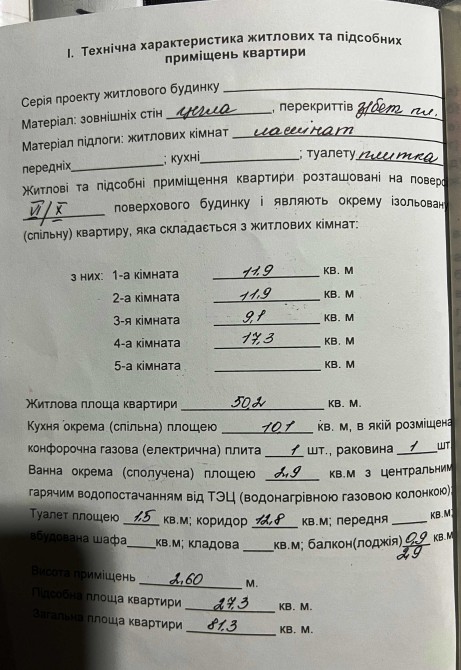 I. Технічна характеристика житлових та підсобних
приміщень квартири
Серія проекту житлового будинку
Матеріал: зовнішніх стін цегла, перекриттів з/бет пл.
Матеріал підлоги: житлових кімнат ламінат
передніх ; кухні ; туалету плитка
Житлові та підсобні приміщення квартири розташовані на поверс
VI/X поверхового будинку і являють окрему ізольован
(спільну) квартиру, яка складається з житлових кімнат:
з них: 1-а кімната 11.9 кв. м
2-а кімната 11.9 кв. м
3-я кімната 9,1 кв. м
4-а кімната 17,3 кв. м
5-а кімната кв. м
Житлова площа квартири 50,2 кв. м.
Кухня окрема (спільна) площею 10.1 кв. м, в якій розміщена
конфорочна газова (електрична) плита 1 шт., раковина 1 шт.
Ванна окрема (сполучена) площею 2,9 кв.м з центральним
гарячим водопостачанням від ТЭЦ (водонагрівною газовою колонкою);
Туалет площею 1.5 кв.м; коридор 12,8 кв.м; передня кв.м;
вбудована шафа кв.м; кладова кв.м; балкон(лоджія) 0,9 кв.м
2,9
Висота приміщень 2,60 м.
Підсобна площа квартири 27,3 кв. м.
Загальна площа квартири 81.3 кв. м.